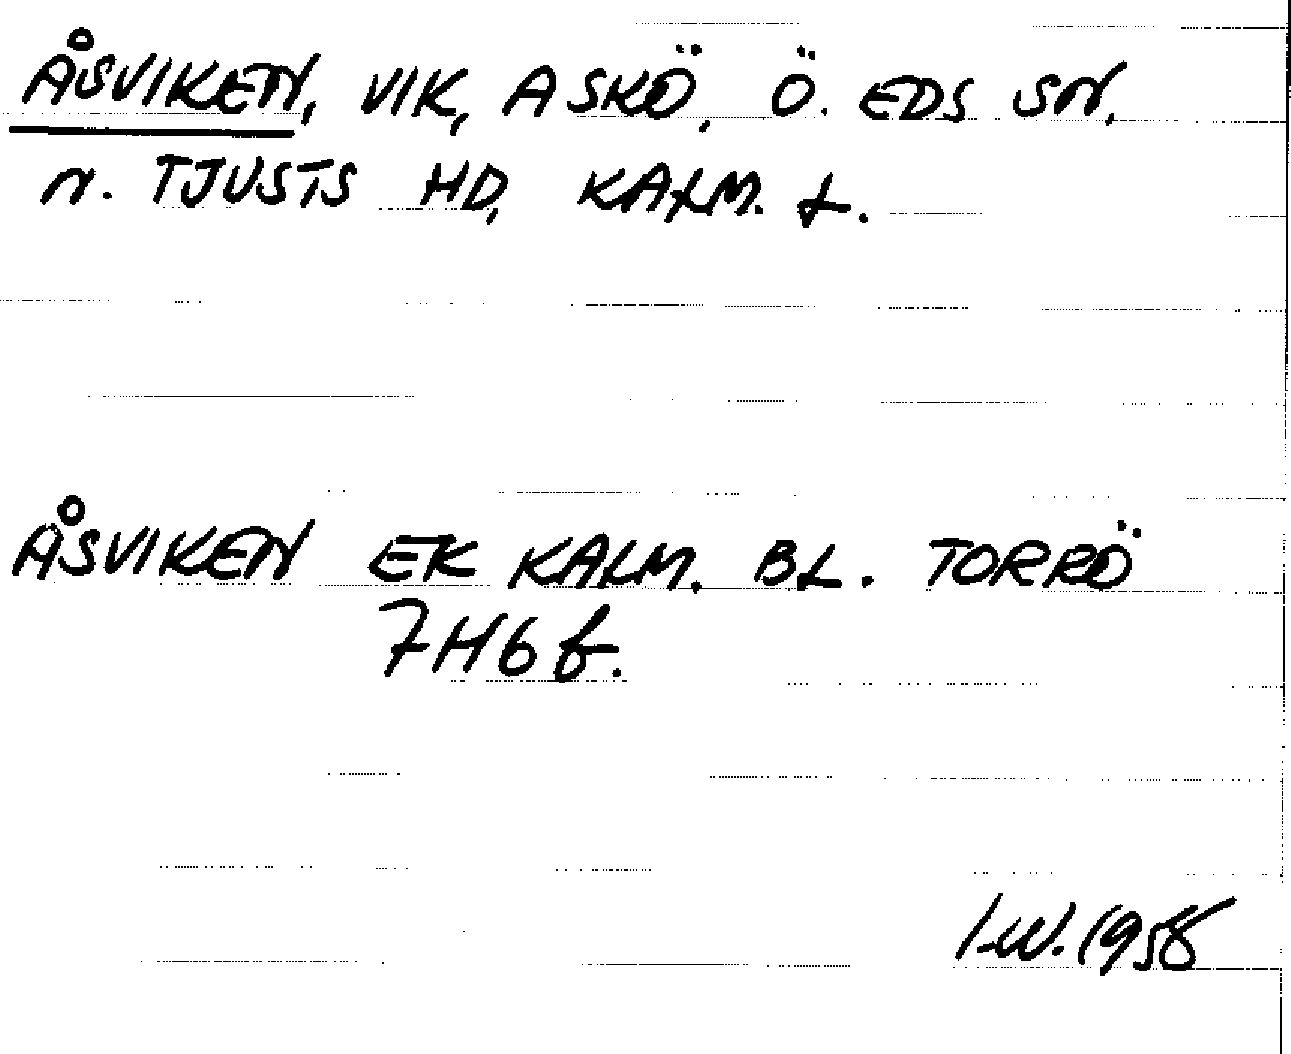 ÅSVIKEN, VIK, ASKÖ, Ö. EDS SN,
N. TJUSTS HD, KALM. L.
ÅSVIKEN EK KALM. BL. TORRÖ
7H6f.
I.W. 1958